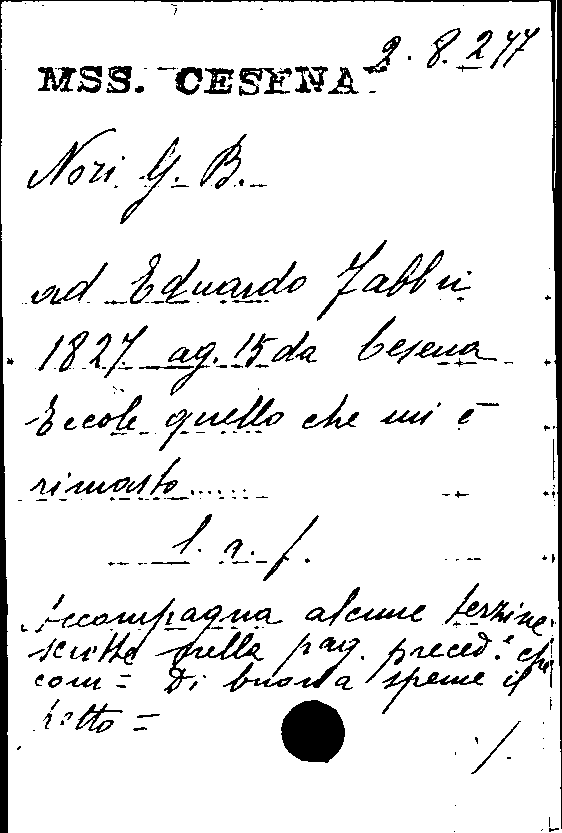 2.8.277
MSS. CESENA
Nori G. B.
ad Eduardo Fabbri
1827 ag. 15 da Cesena
Eccole quello che mi è
rimasto......
l. a. f.
Accompagna alcune terzine
scritte nella pag. preced.e che
com = Di buona speme il
petto =
./.